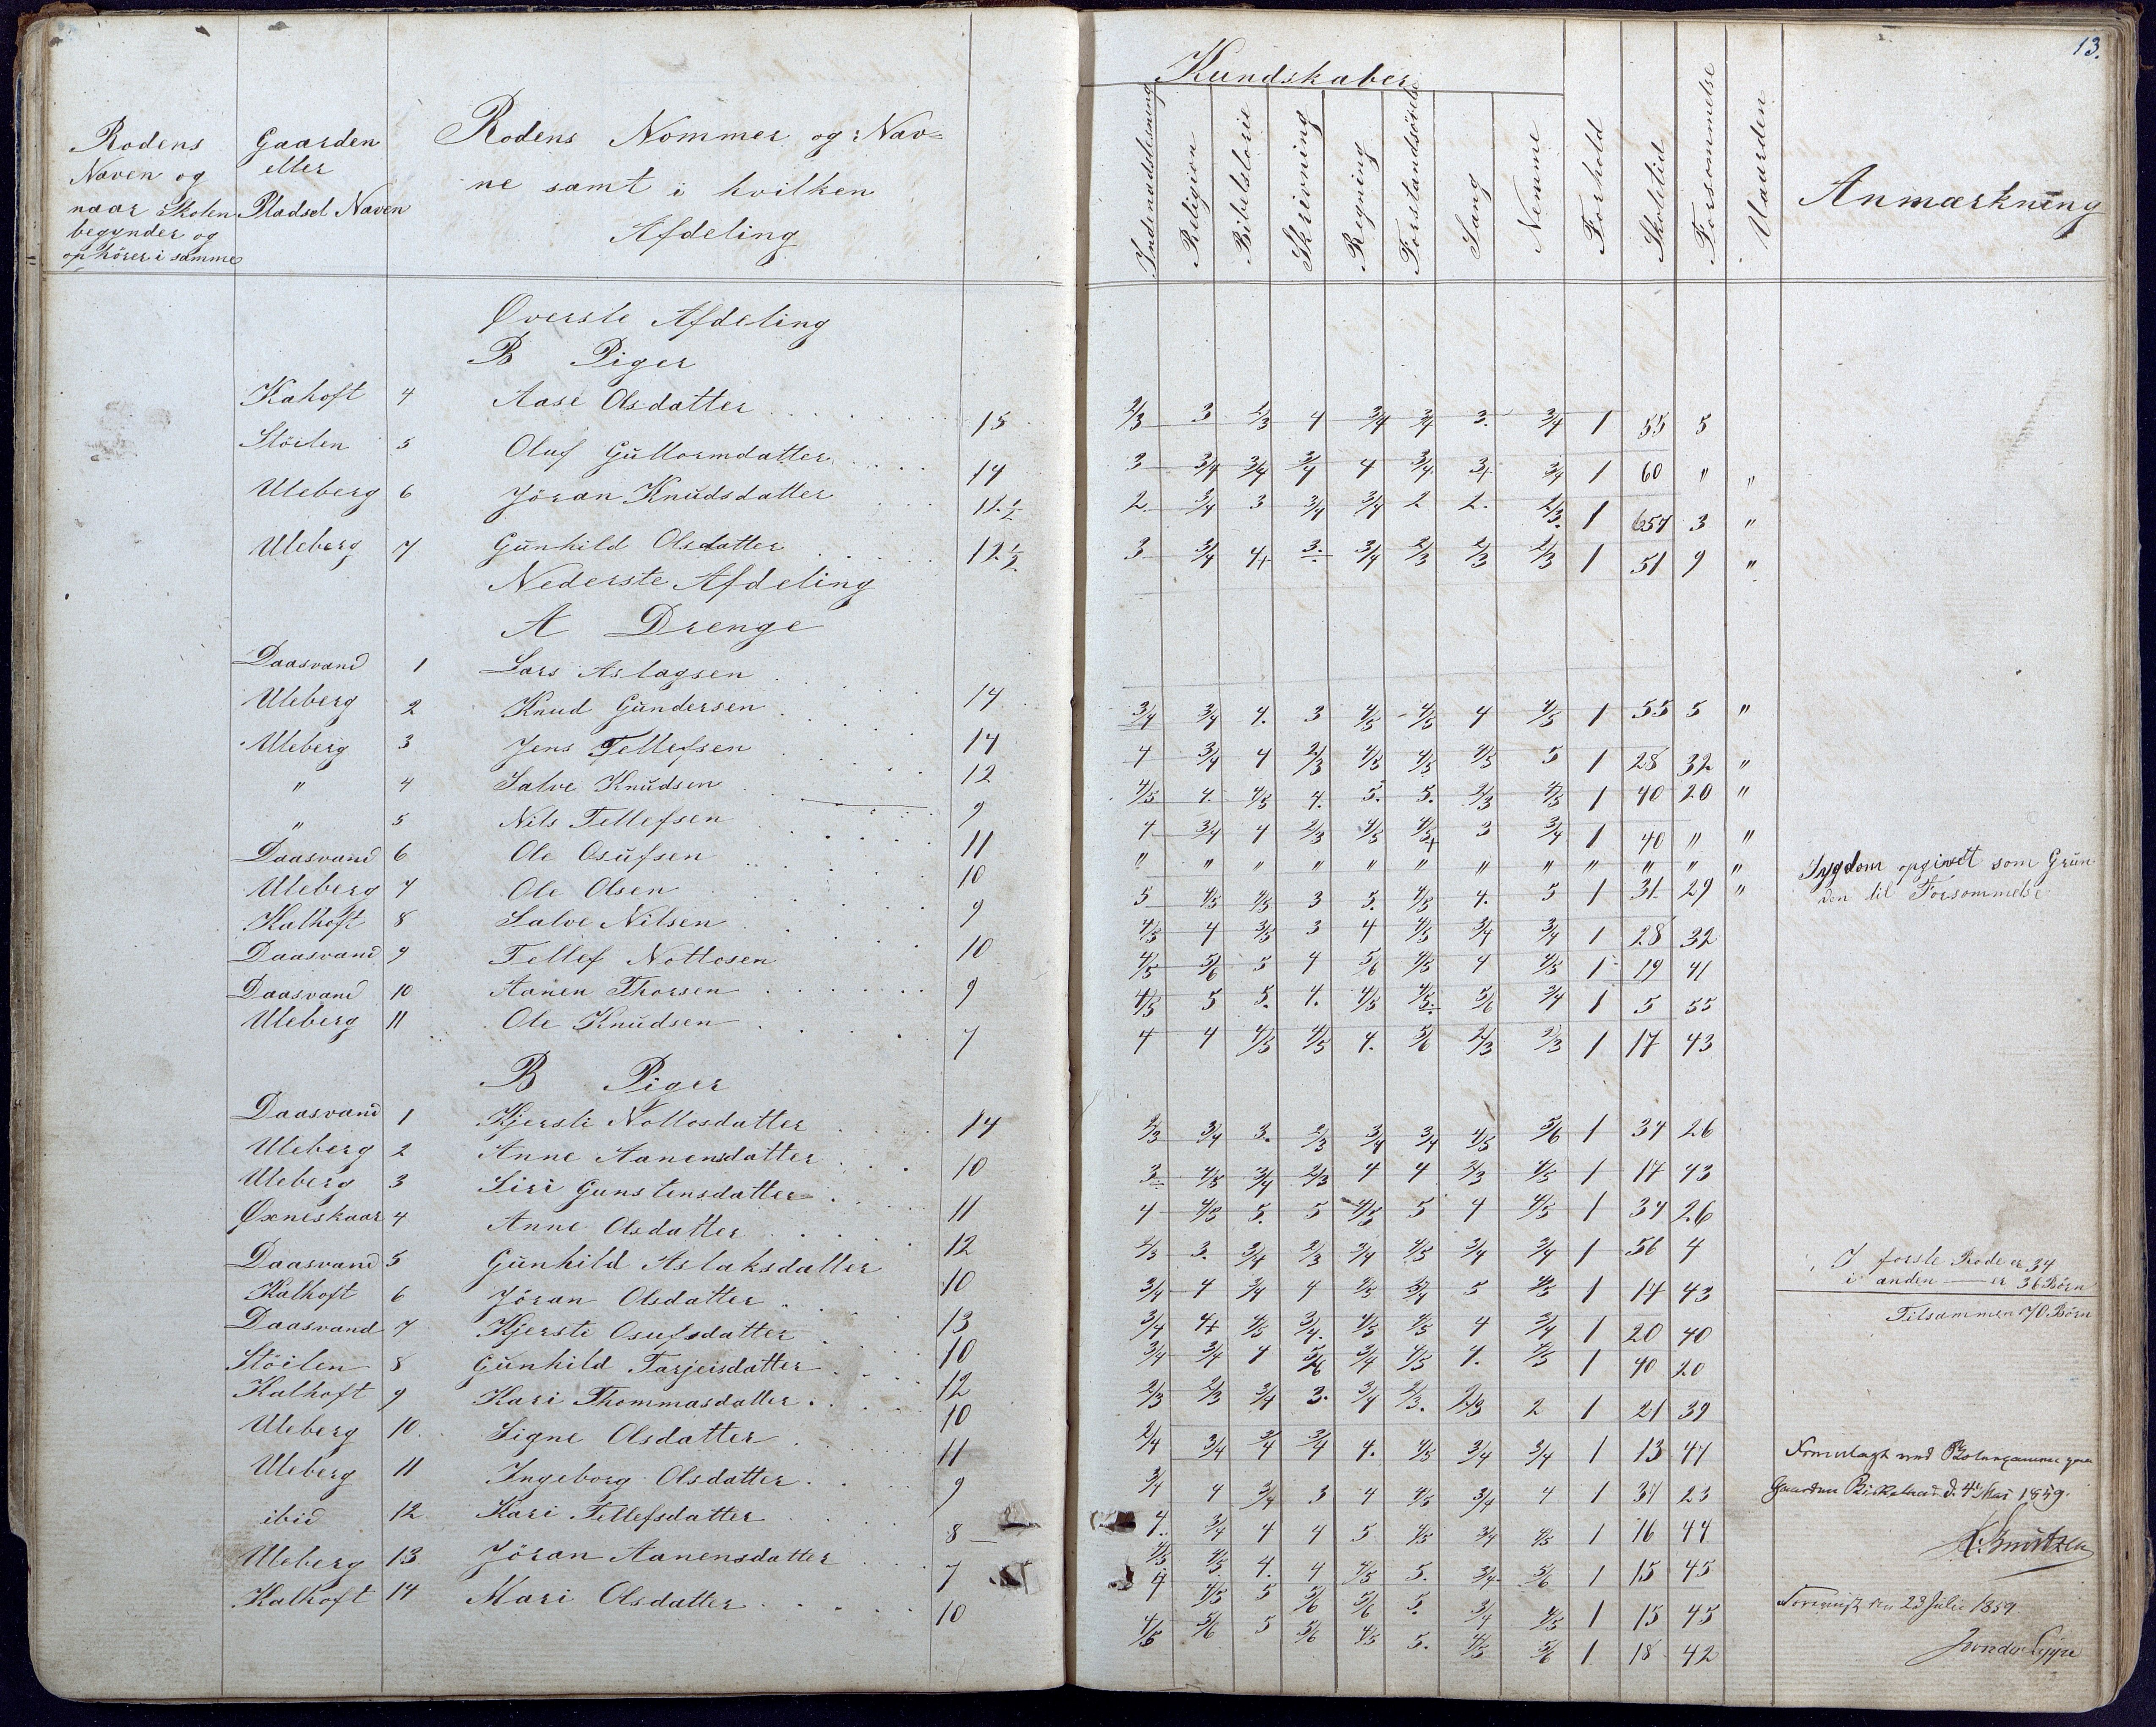 13.
Rodens
Naven og
naar Skolen
begynder og
ophörer i samme
Gaarden
eller
Pladsel Naven
Rodens Nommer og Nav=
ne samt i hvilken
Afdeling
Kundskaber
Indenadslesning Religion Bibelstorie Skrivning Regning Forstandsövelse Sang Nemme Forhold Skoletid Forsommelse Uaarden
Anmærkning
Øverste Afdeling
B Piger
Kahoft 4 Aase Olsdatter 15 2/3 3 2/3 4 3/4 3/4 3. 3/4 1 55 5
Stöilen 5 Oluf Guttormdatter 14 3 3/4 3/4 3/4 4 3/4 3+ 3/4 1 60 " "
Uleberg 6 Jöran Knudsdatter 11 1/2 2. 3/4 3 3/4 3/4 2 2. 2/3. 1 657 3 "
Uleberg 7 Gunhild Olsdatter 12 1/2 3 3/4 4+ 3. 3/4 2/3 2/3 2/3 1 51 9 "
Nederste Afdeling
A Drenge
Daasvand 1 Lars Aslagsen 14 3/4 3/4 4. 3 4/5 4/5 4 4/5 1 55 5 "
Uleberg 2 Knud Gundersen 14 4 3/4 4 2/3 4/5 4/5 4/5 5 1 28 32 "
Uleberg 3 Jens Tellefsen 12 4/5 4. 4/5 4. 5. 5. 2/3 4/5 1 40 20 "
" 4 Salve Knudsen 9 4 3/4 4 2/3 4/5 4/5+ 3 3/4 1 40 " "
" 5 Nils Tellefsen 11 " " " " " " " " " " " "
Daasvand 6 Ole Osufsen 10 5 4/5 4/5 3 5. 4/5 4. 5 1 31 29 "
Sygdom opgivet som Grun
den til Forsommelse
Uleberg 7 Ole Olsen 9 4/5 4 3/5 3 4 4/5 3/4 3/4 1 28 32
Kalhoft 8 Salve Nilsen 10 4/5 5/6 5 4 5/6 4/5 4 4/5 1 19 41
Daasvand 9 Tellef Nottosen 9 4/5 5 5. 4. 4/5 4/5. 5/6 3/4 1 5 55
Daasvand 10 Aanen Thorsen 7 4 4 4/5 4/5 4. 5/6 2/3 2/3 1 17 43
Uleberg 11 Ole Knudsen
B Piger
Daasvand 1 Kjersti Nottosdatter 14 2/3 3/4 3. 2/3 3/4 3/4 4/5 5/6 1 34 26
Uleberg 2 Anne Aanensdatter 10 3 4/5 3/4 2/3 4 4 2/3 4/5 1 17 43
Uleberg 3 Siri Gunstensdatter 11 4 4/5 5. 5 4/5 5 4 4/5 1 34 26
Øxneskaar 4 Anne Olsdatter 12 2/3 3. 3/4 2/3 3/4 4/5 3/4 3/4 1 56 4
Daasvand 5 Gunhild Aslaksdatter 10 3/4 4 3/4 4 4/5 3/4 5 4/5 1 17 43
I forste Rode er 34
i anden — er 36 Börn
Tilsammen 70 Börn
Kalhoft 6 Jöran Olsdatter 13 3/4 4+ 4/5 3/4. 4/5 4/5 4 3/4 1 20 40
Daasvand 7 Kjersti Osufsdatter 10 3/4 3/4 4 5/6 3/4 4/5 4. 4/5 1 40 20
Stöilen 8 Gunhild Tarjeisdatter 12 2/3 2/3 3/4 3. 3/4 2/3. 2/3 2 1 21 39
Kalhoft 9 Kari Thommasdatter 10 2/4 3/4 3/4 3/4 4. 4/5 3/4 3/4 1 13 47
Uleberg 10. Signe Olsdatter 11 3/4 4 3/4 3 4 4/5 3/4 4 1 37 23
Uleberg 11 Ingeborg Olsdatter 9 4. 3/4 4 4 5 4/5 3/4 4/5 1 16 44
ibid 12 Kari Tellefsdatter 8 4/5 4/5 4. 4 4/5 5. 3/4 5/6 1 15 45
Uleberg 13 Jöran Aanensdatter 7 4 4/5 5 5/6 5/6 5. 3/4 4/5 1 15 45
Kalhoft 14 Mari Olsdatter 10 4/5 5/6 5 5/6 4/5 5. 4/5 5/6 1 18 42
Fremlagt ved
Gaarden Birkeland d. 4 Mai 1859.
K. Knutzen
Foreviist den 23 Julii 1859